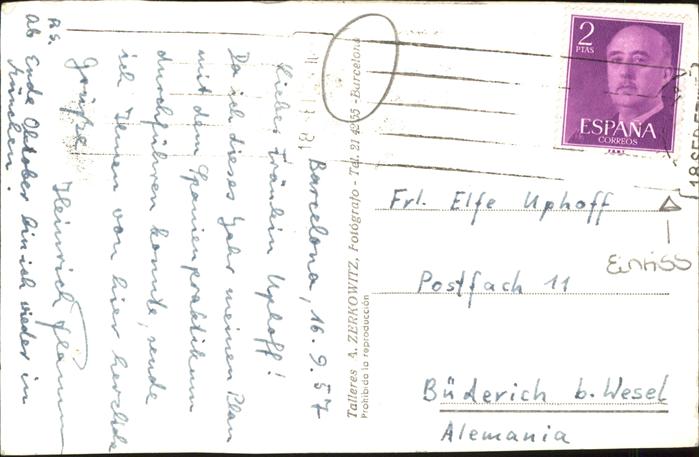 Barcelona, 16.9.57
Liebes Fräulein Uphoff!
Da ich dieses Jahr meinen Plan
mit dem Spanienpraktikum
durchführen konnte, sende
ich Ihnen von hier herzliche
Grüße Heinrich
P.S.
Ab Ende Oktober bin ich wieder in
München.
Talleres A. ZERKOWITZ, Fotógrafo - Tel. 21 4255 - Barcelona
Prohibida la reproducción
2
PTAS
ESPAÑA
CORREOS
Frl. Elfe Uphoff
Einriss
Postfach 11
Büderich b. Wesel
Alemania